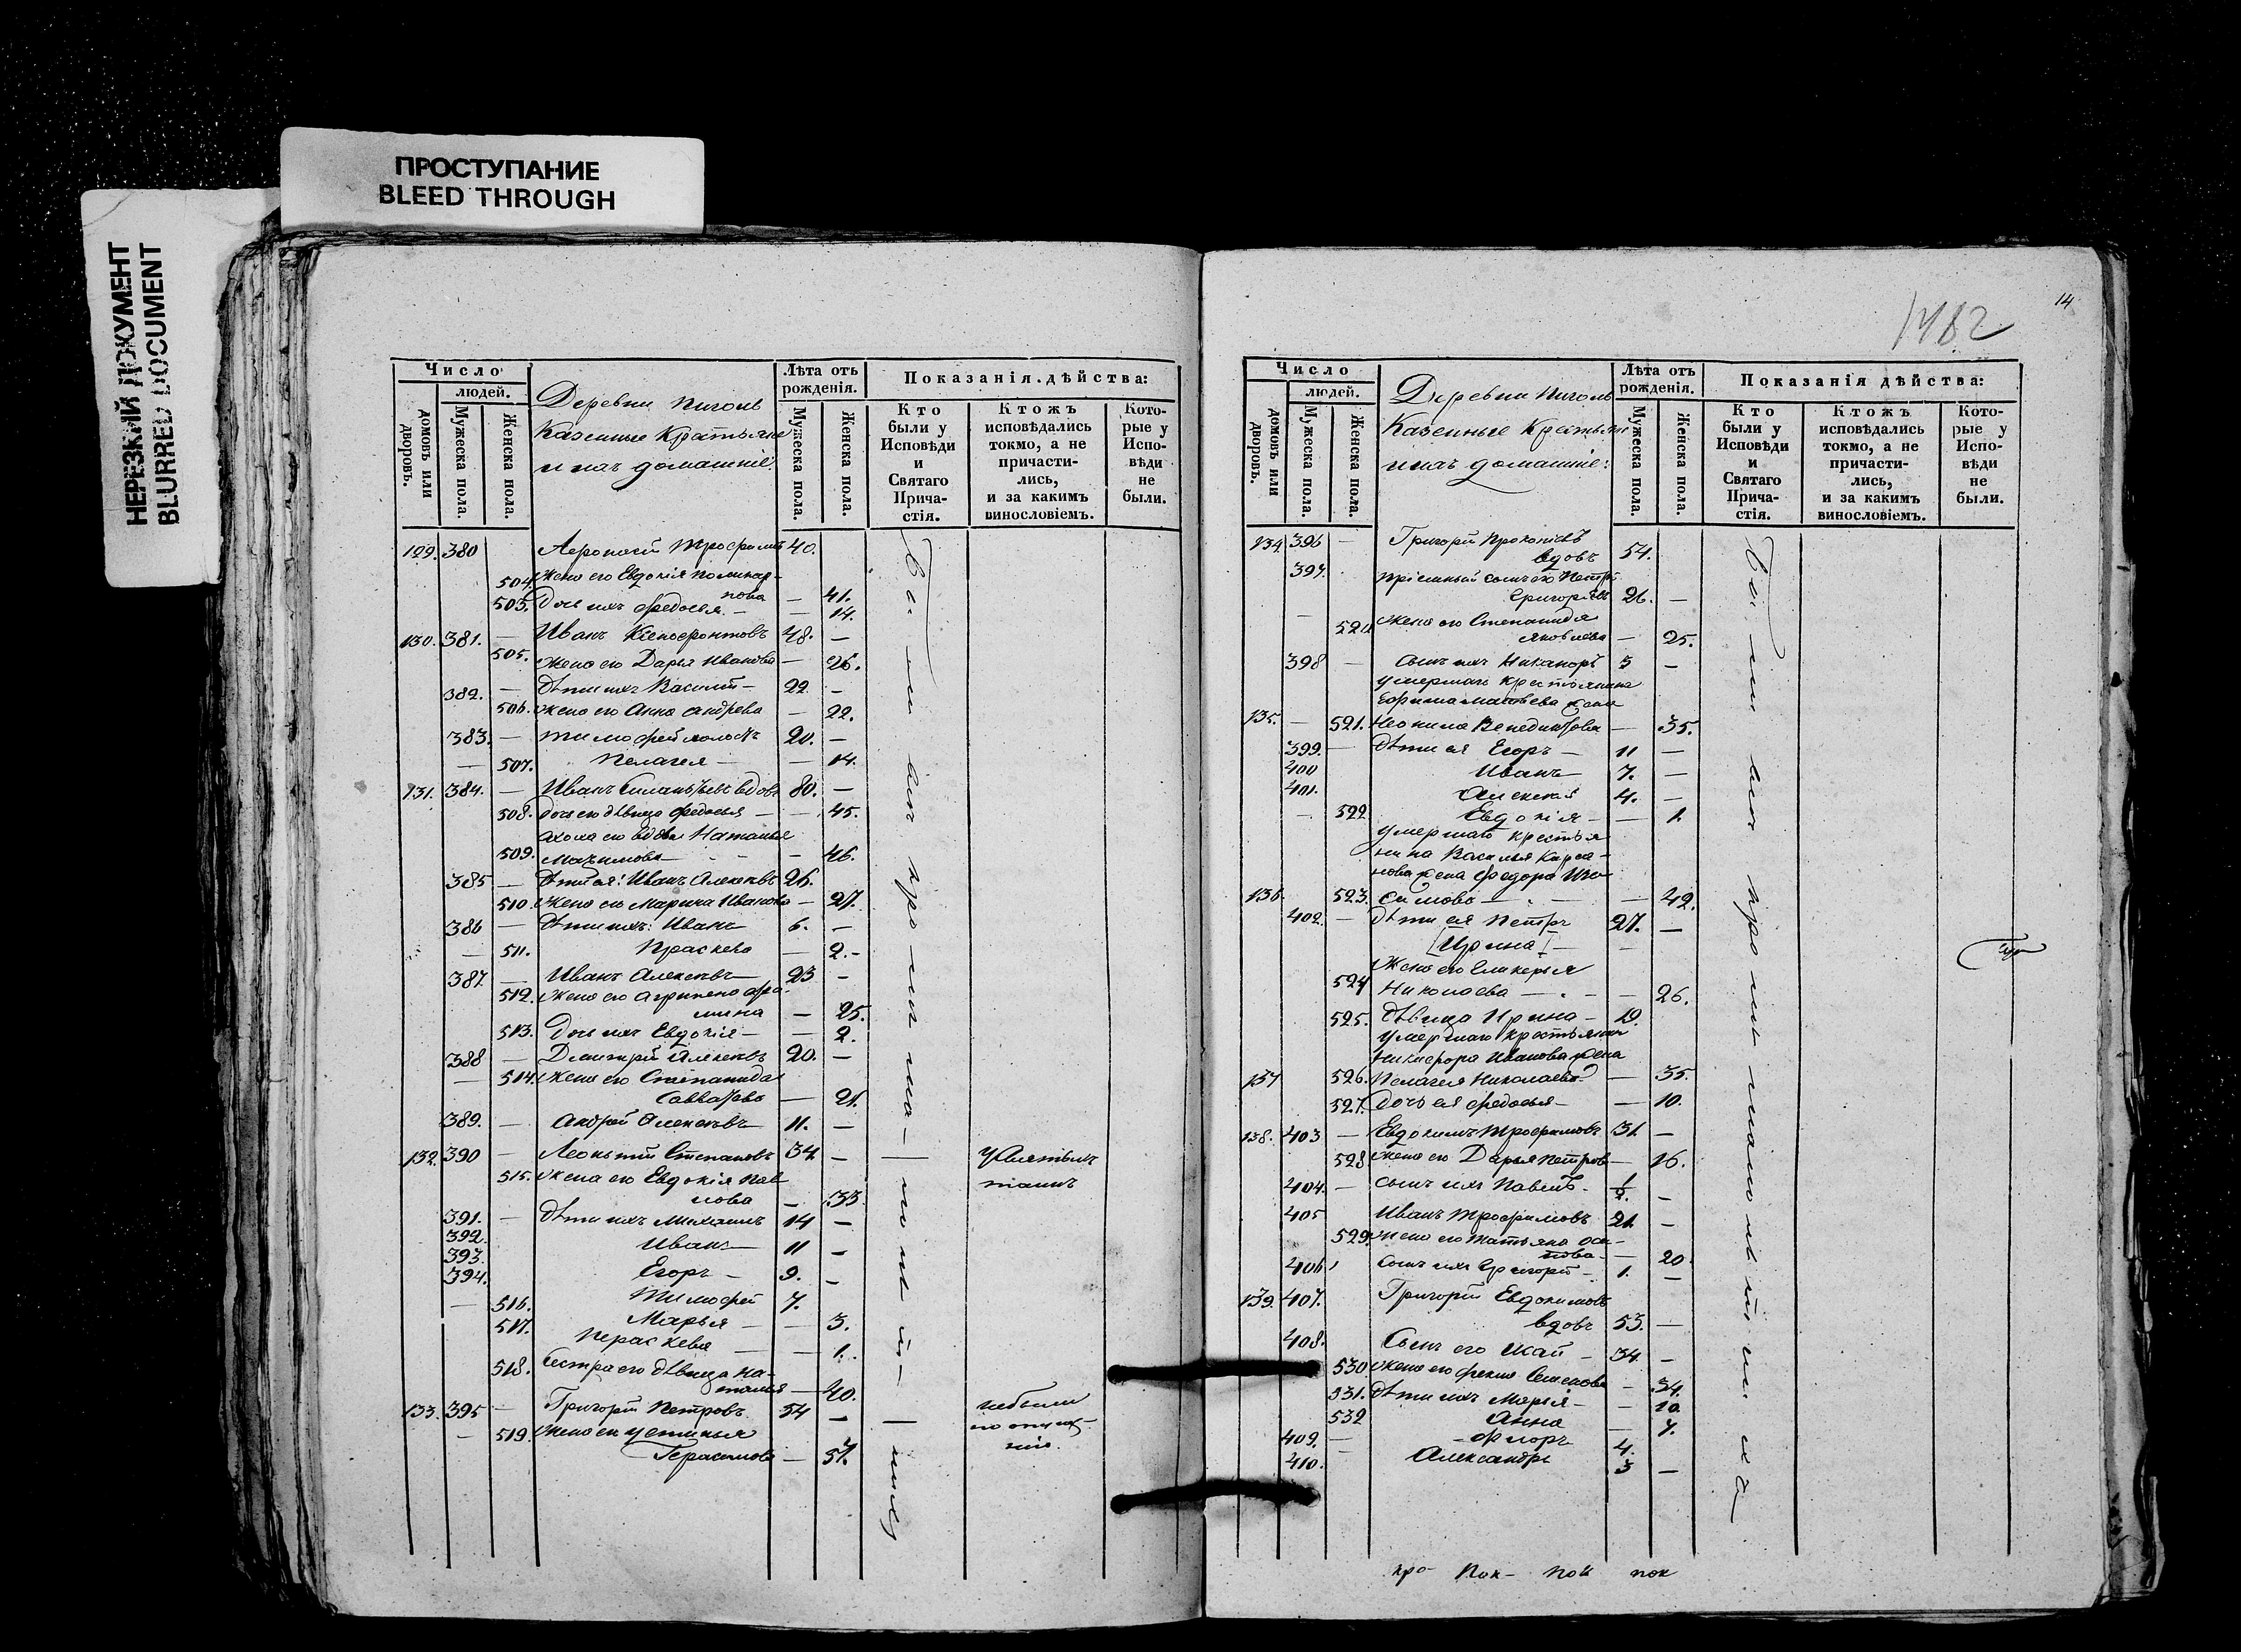 ПРОСТУПАНИЕ
BLEED THROUGH
НЕРЕЗКИЙ ДОКУМЕНТ
BLURRED DOCUMENT
Число
людей.
домовъ или дворовъ.
Мужеска пола.
Женска пола.
Деревни
Казенные Крестьяне
и ихъ домашніе:
Лѣта отъ рожденія.
Мужеска пола.
Женска пола.
Показанія дѣйства:
Кто были у Исповѣди и Святаго Прича-стія.
Ктожъ исповѣдались токмо, а не причасти-лись, и за какимъ винословіемъ.
Кото-рые у Испо-вѣди не были.
129. 380 Трофимъ 40.
504. Жена его Евдокія
503. Дочь ихъ Федосья — 14.
41.
130. 381. — Иванъ 48. —
505. Жена его Дарья Иванова — 26.
382. — Дѣти ихъ Василій — 22 —
506. Жена его Анна Андрева — 22.
383. — Тимофей холостъ 20. —
— 507. Пелагея — — 14.
131. 384. — Иванъ вдовъ 80. —
508. дочь его дѣвица Федосья — — 45.
его вдова Наталья
509. — 46.
385 — Дѣти ея: Иванъ Алексѣевъ 26.
510. Жена его Марина Иванова — 27.
386 — Дѣти ихъ: Иванъ 6. —
— 511. Праскева — 2. —
387. — Иванъ Алексѣевъ 23 —
512. Жена его Агрипена
— 25.
513. Дочь ихъ Евдокія — — 2.
388 — Димитрій Алексѣевъ 20. —
— 514. Жена его Степанида
— 21.
389. — Андрей Алексѣевъ 11. —
132. 390 — Леонтій Степановъ 34 —
515. Жена его Евдокія Пав
лова — 33.
391. — Дѣти ихъ Михаилъ 14 —
392. Иванъ 11 —
393.
394. Егоръ — 9. —
— 516. Тимофей 7.
517. Марья — — 3.
Пераскева — — 1.
518. Сестра его дѣвица На-
талья — 40.
133. 395 — Григорій Петровъ 54 —
небыли
— 519. Жена его Устинья
Герасимова — 57.
14
1782
Число
людей.
домовъ или дворовъ.
Мужеска пола.
Женска пола.
Деревни
Казенные Крестьяне
и ихъ домашніе:
Лѣта отъ рожденія.
Мужеска пола.
Женска пола.
Показанія дѣйства:
Кто были у Исповѣди и Святаго Прича-стія.
Ктожъ исповѣдались токмо, а не причасти-лись, и за какимъ винословіемъ.
Кото-рые у Испо-вѣди не были.
134 396 — Григорій Прокопіевъ
вдовъ 54.
397. пріемный сынъ его Петръ
Григорьевъ 26. —
— 520 Жена его Степанида
Яковлева — 25.
398 — Сынъ ихъ Никаноръ 3 —
умершаго крестьянина
жена
135. — 521. Неонила Венедиктова — 35.
399. — Дѣти ея Егоръ — 11 —
400 Иванъ 7. —
401. Алексей 4. —
— 522 Евдокія — — 1.
умершаго крестья
нина Василья Кирса-
нова жена Федора
136. 523. — 42.
402. — Дѣти ея Петръ 27. —
[Ирина] —
Жена его Гликерья
524 Николаева — — 26.
525. Дѣвица Ирина — 19.
умершаго крестьянина
Никифора Иванова жена
137 526. Пелагея Николаева — 35.
527. Дочь ея Федосья — — 10.
138. 403 — Евдокимъ Трофимовъ 31. —
528 Жена его Дарья Петрова — 26.
404. — Сынъ ихъ Павелъ 1/2. —
405 Иванъ Трофимовъ 21. —
529. Жена его Татьяна
— 20.
406. Сынъ ихъ Григорій — 1. —
139. 407. Григорій Евдокимовъ
вдовъ 53. —
408. Сынъ его 34. —
530 Жена его Фекла Семенова — 34.
531. Дѣти ихъ Марья — — 10
532 Анна — 7.
409. — Флоръ 4.
410. — Александръ 3 —